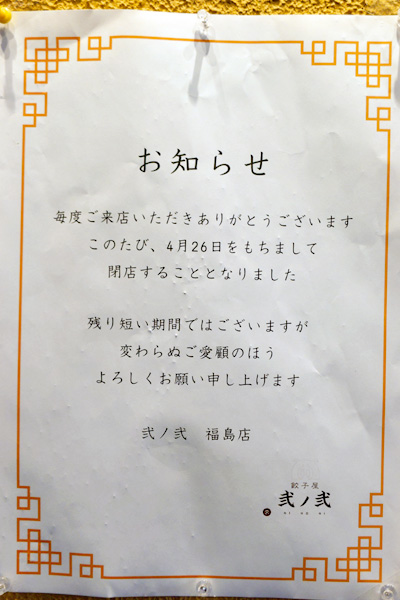 お知らせ
毎度ご来店いただきありがとうございます
このたび、4月26日をもちまして
閉店することとなりました
残り短い期間ではございますが
変わらぬご愛顧のほう
よろしくお願い申し上げます
弐ノ弐 福島店
餃子屋
弐ノ弐
ni no ni